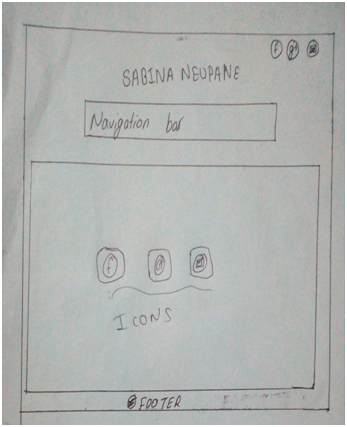 f g+
SABINA NEUPANE
Navigation bar
f
ICONS
FOOTER